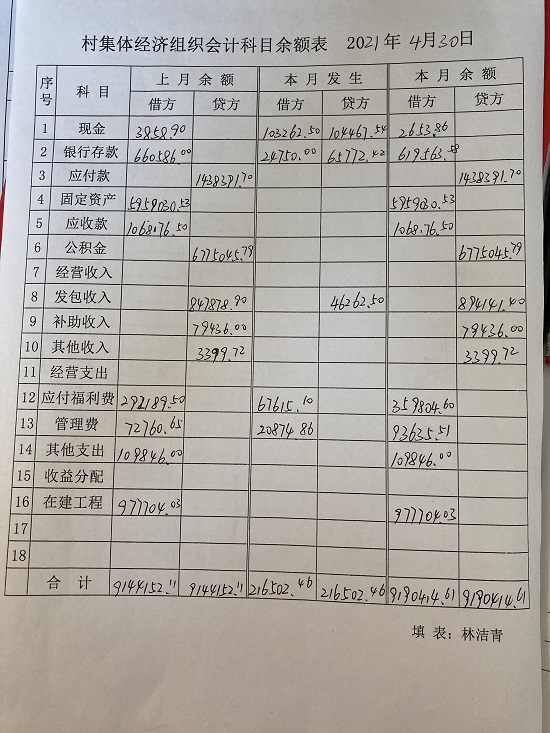 村集体经济组织会计科目余额表 2021年4月30日
序号 科目 上月余额 本月发生 本月余额
借方 贷方 借方 贷方 借方 贷方
1 现金 3858.90 103262.50 104467.54 2653.86
2 银行存款 660586.00 24750.00 65772.42 619563.58
3 应付款 1438391.70 1438391.70
4 固定资产 5959030.53 5959030.53
5 应收款 1068176.50 1068176.50
6 公积金 6775045.79 6775045.79
7 经营收入
8 发包收入 847878.90 46262.50 894141.40
9 补助收入 79436.00 79436.00
10 其他收入 3399.72 3399.72
11 经营支出
12 应付福利费 292189.50 67615.10 359804.60
13 管理费 72760.65 20874.86 93635.51
14 其他支出 109846.00 109846.00
15 收益分配
16 在建工程 977704.03 977704.03
17
18
合计 9144152.11 9144152.11 216502.46 216502.46 9190414.61 9190414.61
填表：林洁青